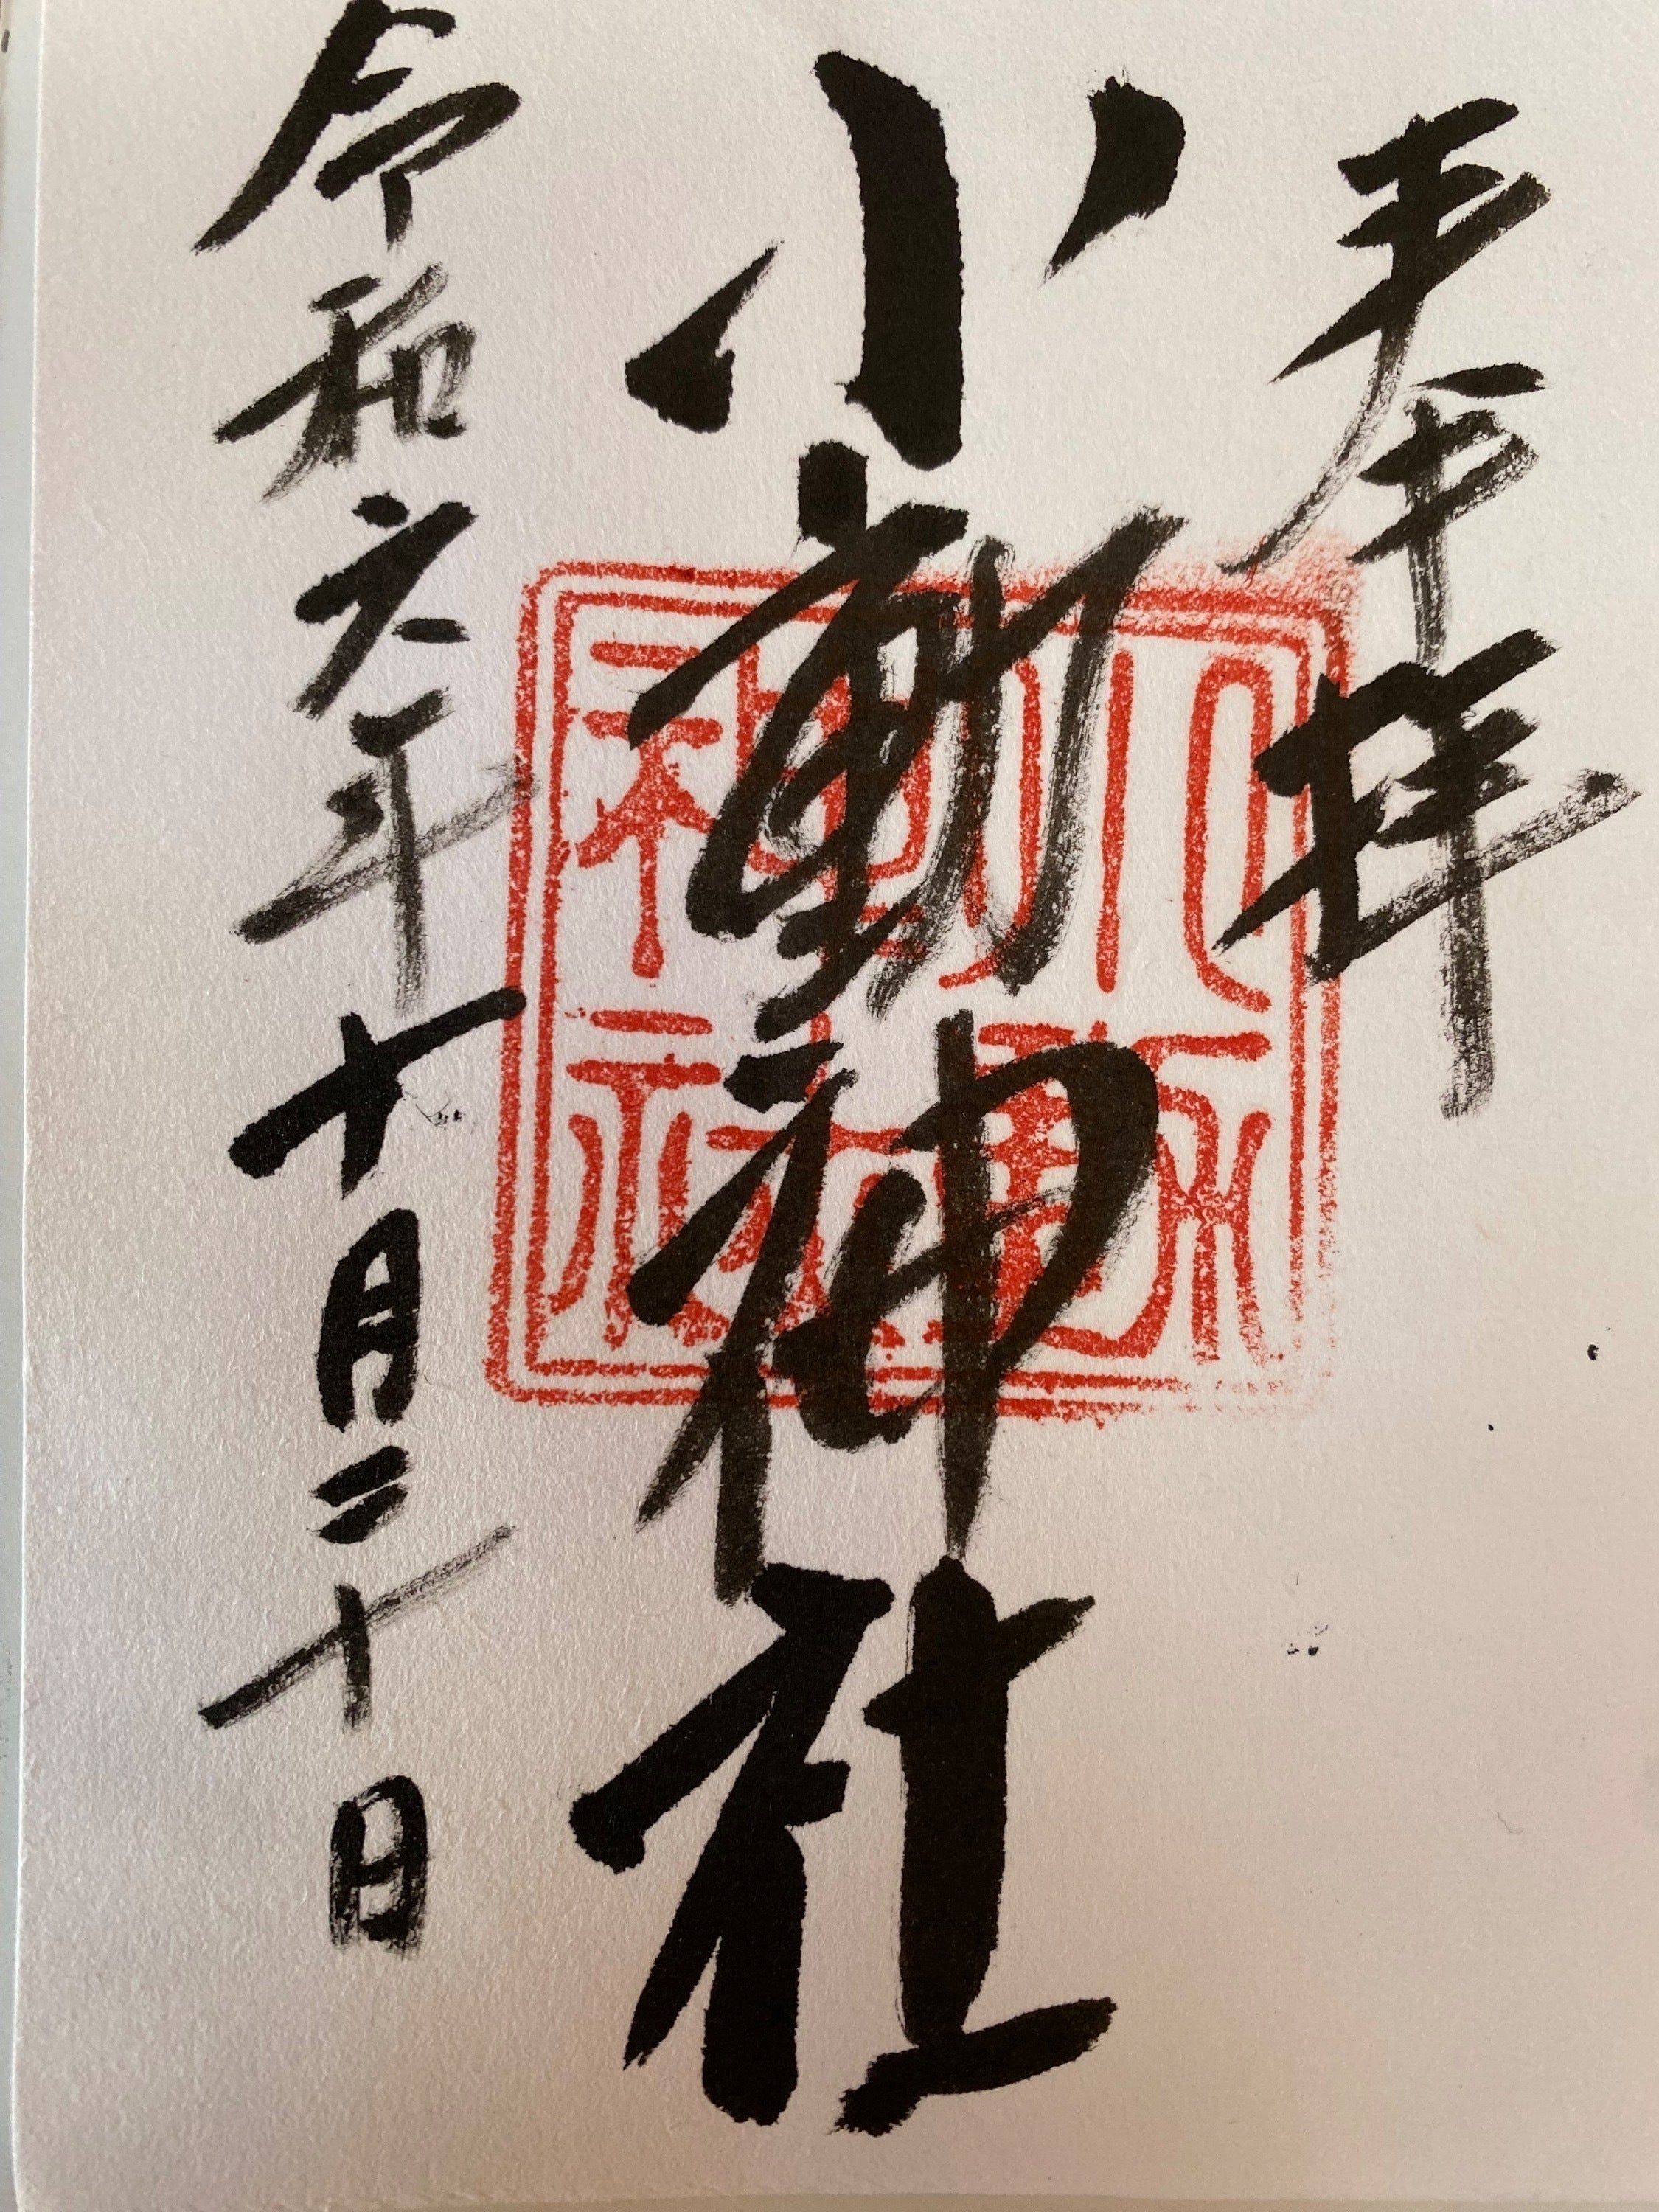 奉拝
小動神社
令和六年十月二十日
小動神社